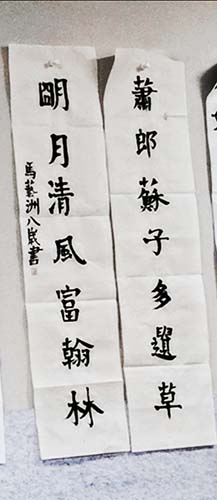 蕭郎蘇子多選草
明月清風富翰林
馬藝洲八歲書